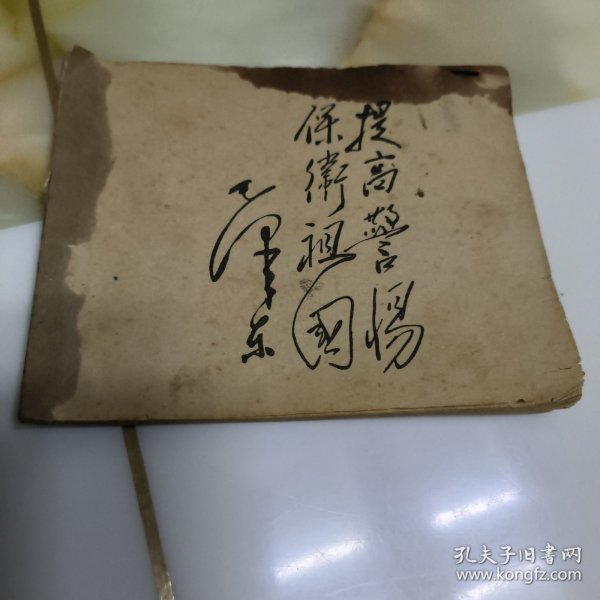 提高警惕
保衛祖國
毛澤东
孔夫子旧書网
www.kongfz.com